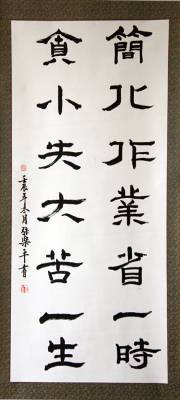 簡化作業省一時
貪小失大苦一生
壬辰年冬月張樂平書